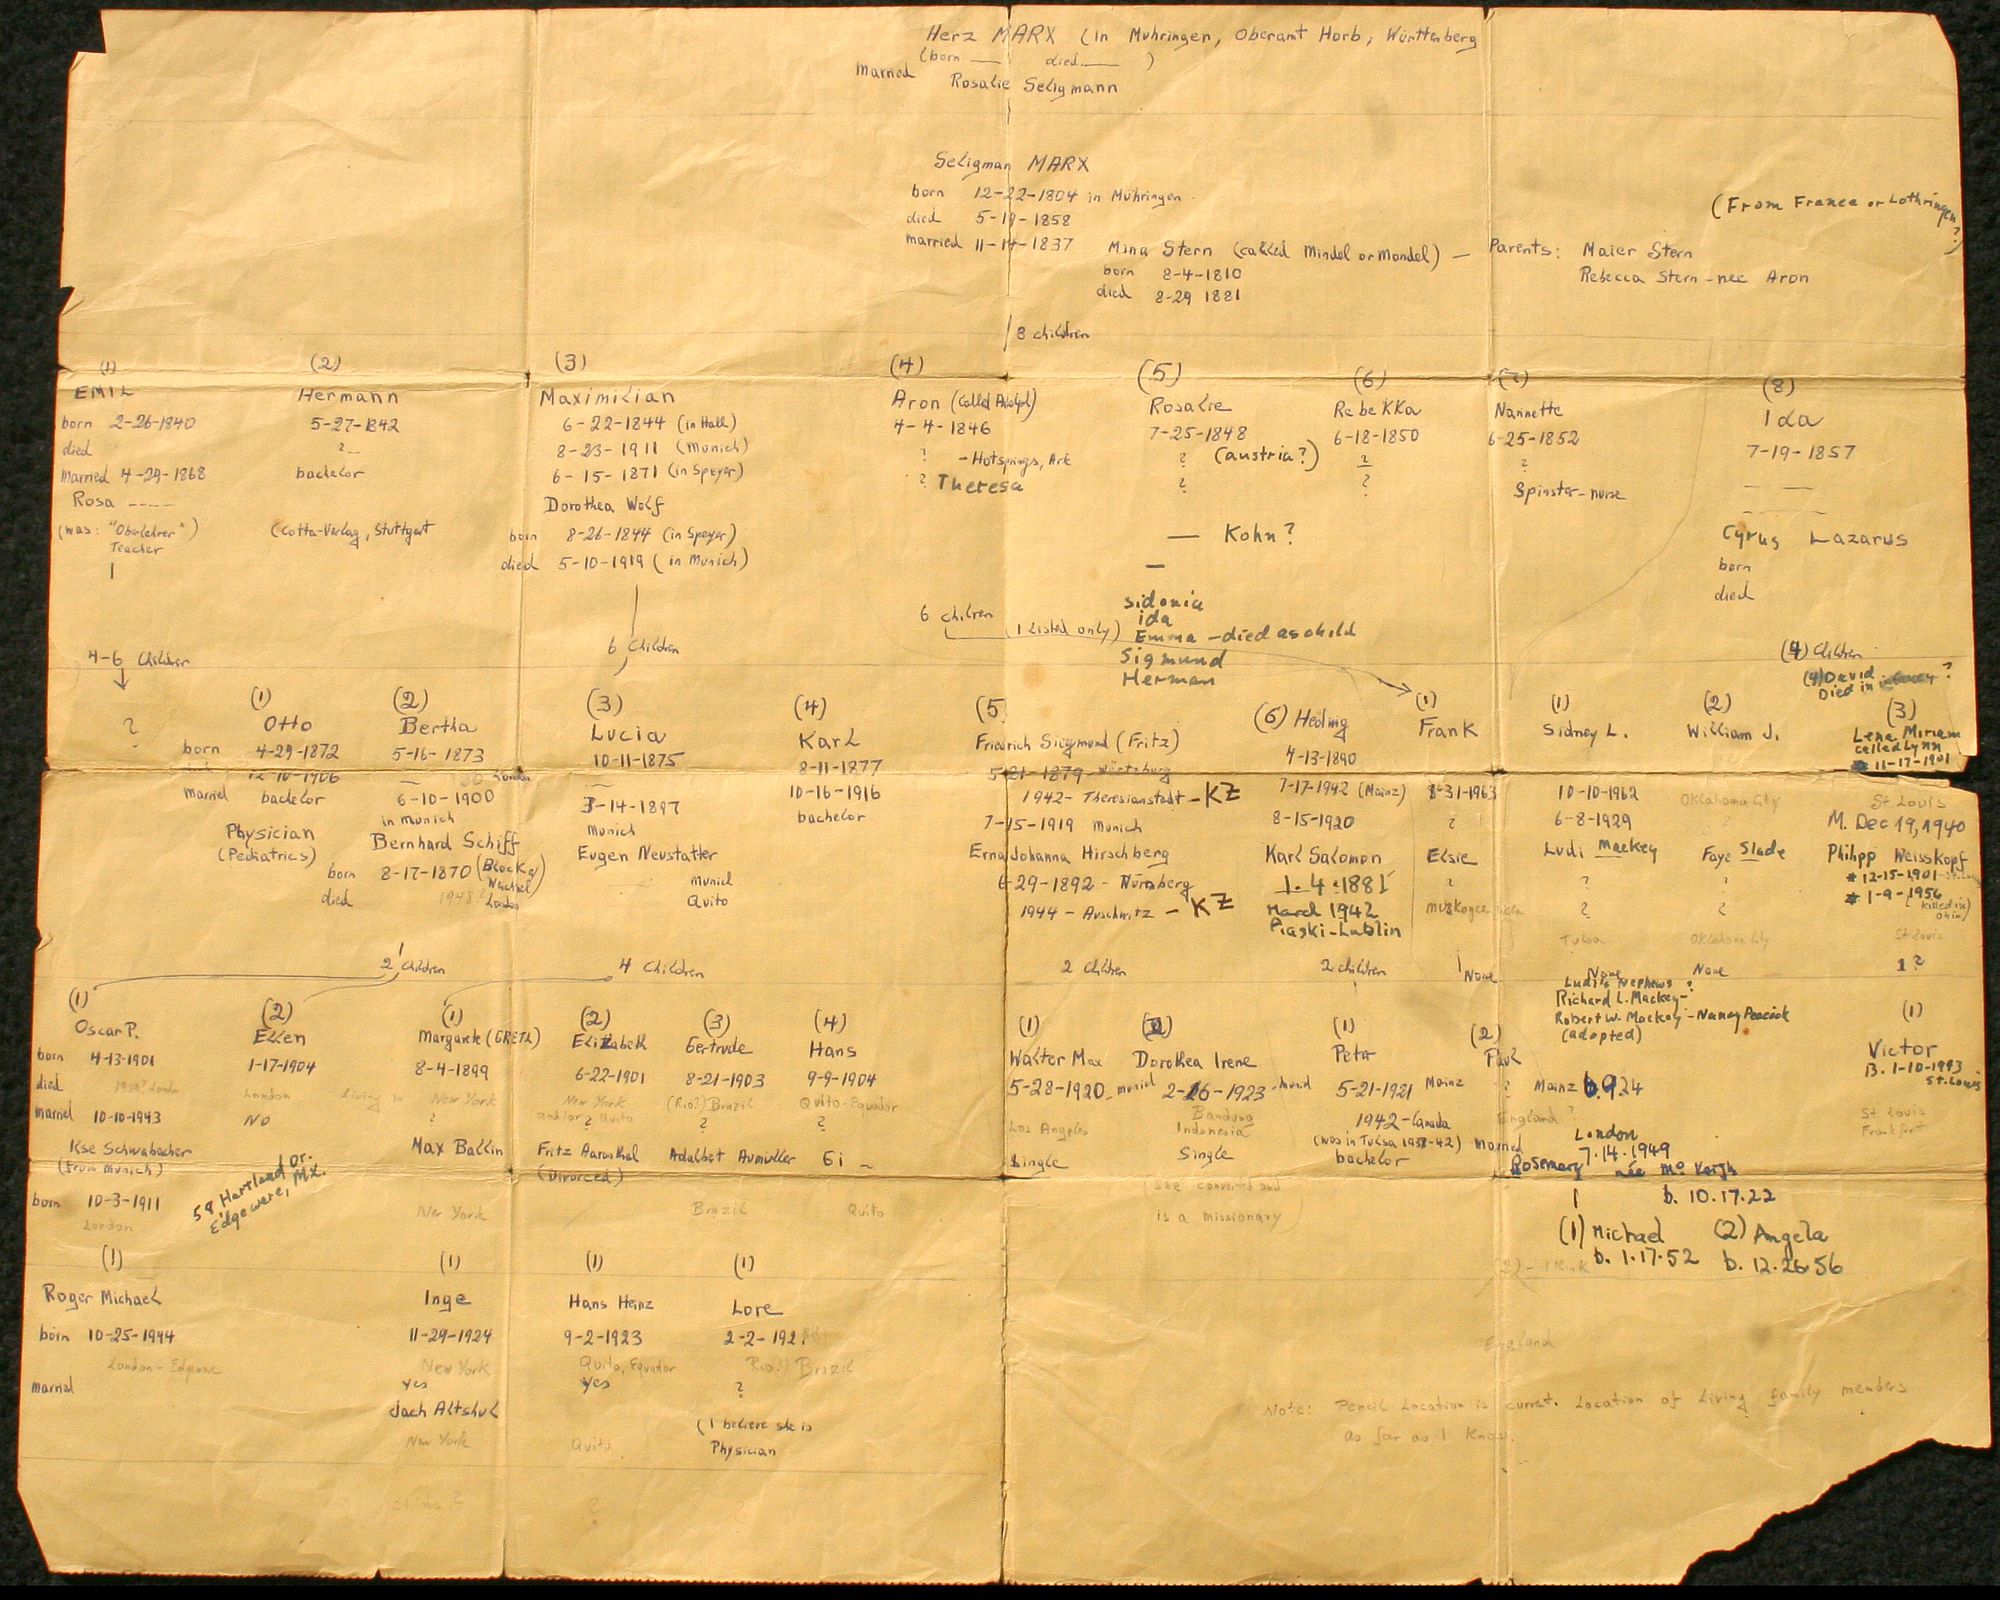 Herz MARX (in Muhringen, Oberamt Horb, Württenberg
(born — died — )
married Rosalie Seligmann
Seligman MARX
born 12-22-1804 in Mühringen
died 5-19-1858
married 11-14-1837
Mina Stern (called Mindel or Mondel) — Parents: Maier Stern
(From France or Lothringen ?)
born 8-4-1810
Rebecca Stern - nee Aron
died 8-29 1881
8 children
(1)
EMIL
born 2-26-1840
died
married 4-29-1868
Rosa ----
(was: "Oberlehrer")
Teacher
4-6 Children
?
(2)
Hermann
5-27-1842
?
bachelor
(Cotta-Verlag, Stuttgart
(3)
Maximilian
6-22-1844 (in Hall)
8-23-1911 (Munich)
6-15-1871 (in Speyer)
Dorothea Wolf
born 8-26-1844 (in Speyer)
died 5-10-1919 (in Munich)
6 Children
(4)
Aron (called Adolph)
4-4-1846
? - Hotsprings, Ark
? Theresa
6 children
(1 listed only)
(5)
Rosalie
7-25-1848
? (austria?)
?
— Kohn?
—
sidonia
ida
Emma - died as child
Sigmund
Herman
(6)
Rebekka
6-18-1850
?
?
(7)
Nannette
6-25-1852
?
Spinster-nurse
(8)
Ida
7-19-1857
— —
Cyrus Lazarus
born
died
(4) Children
(4) David ?
Died in
(1)
Otto
born 4-29-1872
12-10-1906
married bachelor
Physician
(Pediatrics)
(2)
Bertha
5-16-1873
— London
6-10-1900
in Munich
Bernhard Schiff
born 8-17-1870
died 1948? London
2 Children
(3)
Lucia
10-11-1875
—
3-14-1897
Munich
Eugen Neustatter
Munich
Quito
4 Children
(4)
Karl
8-11-1877
10-16-1916
bachelor
(5
Friedrich Siegmund (Fritz)
5-21-1879 - Würtzburg
1942 - Theresianstadt - KZ
7-15-1919 Munich
Erna Johanna Hirschberg
6-29-1892 - Nürnberg
1944 - Auschwitz - KZ
2 Children
(6) Hedwig
4-13-1890
7-17-1942 (Mainz)
8-15-1920
Karl Salomon
1.4.1881
March 1942
Piaski-Lublin
2 children
(1)
Frank
8-31-1963
?
Elsie
?
Muskogee
None
(1)
Sidney L.
10-10-1962
6-8-1929
Ludi Mackey
?
?
Tulsa
None
Ludi's Nephews ?
Richard L. Mackey -
Robert W. Mackey - Nancy Peacock
(adopted)
(2)
William J.
Oklahoma City
?
Faye Slade
?
?
Oklahoma City
None
(3)
Lena Miriam
called Lynn
* 11-17-1901
St Louis
M. Dec 19, 1940
Philipp Weisskopf
* 12-15-1901 - St. Louis
* 1-9-1956
(killed in Ohio)
St Louis
1 ?
(1)
Oscar P.
born 4-13-1901
died London
married 10-10-1943
Ilse Schwabacher
(from Munich)
born 10-3-1911
London
58 Hartland Dr.
Edgeware, Mx.
(2)
Ellen
1-17-1904
London
NO
(1)
Margarete (GRETL)
8-4-1899
Living in New York
?
Max Ballin
New York
(2)
Elizabeth
6-22-1901
New York
and/or Quito
?
Fritz Aarosthal
(Divorced)
(3)
Gertrude
8-21-1903
(Rio?) Brazil
?
Adalbert Aumuller
Brazil
(4)
Hans
9-9-1904
Quito-Equador
?
Gi —
Quito
(1)
Walter Max
5-28-1920 - Munich
Los Angeles
Single
(2)
Dorothea Irene
2-26-1923 - Munich
Bandung
Indonesia
Single
(she converted and
is a missionary)
(1)
Peter
5-21-1921 Mainz
1942 - Canada
(was in Tulsa 1938-42)
bachelor
(2)
Paul
? Mainz b. 9.24
England ?
London
married 7.14.1949
Rosemary née Mc Veigh
b. 10.17.22
(1) Michael (2) Angela
b. 1.17.52 b. 12.26 56
England
(1)
Victor
B. 1-10-1943
St. Louis
St Louis
Frankfort
(1)
Roger Michael
born 10-25-1944
London - Edgware
married
(1)
Inge
11-29-1924
New York
yes
Jach Altshul
New York
children?
(1)
Hans Heinz
9-2-1923
Quito, Equador
yes
Quito
?
(1)
Lore
2-2-192
Rio?) Brazil
?
(I believe she is
Physician
Note: Pencil Location is curret. Location of Living family members
as far as I know.